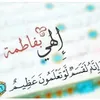 إلهي بفاطمة
وَإِنَّهُ لَقَسَمٌ لَّوْ تَعْلَمُونَ عَظِيمٌ